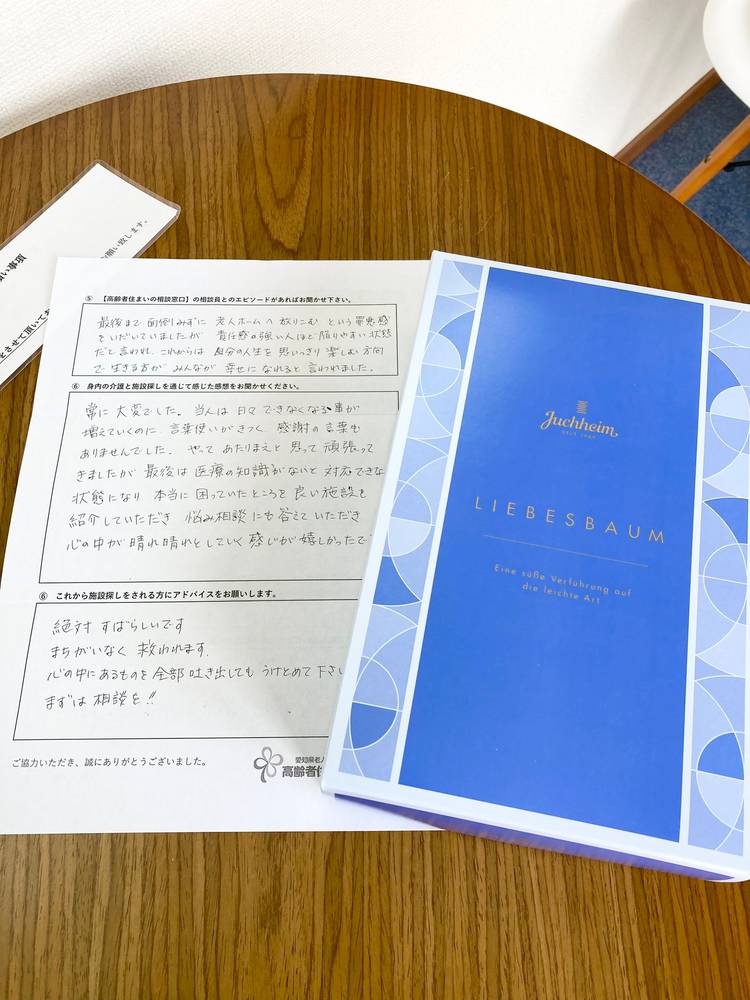 い事項
お願い致します。
とをさせて頂いてお
⑤ 【高齢者住まいの相談窓口】の相談員とのエピソードがあればお聞かせ下さい。
最後まで面倒みずに 老人ホームへ放りこむ という罪悪感
をいだいていましたが 責任感の強い人ほど陥りやすい状態
だと言われ、これからは 自分の人生を思いっきり楽しむ方向
で生きる方が みんなが 幸せになれると言われました。
⑥ 身内の介護と施設探しを通じて感じた感想をお聞かせください。
常に大変でした。当人は日々できなくなる事が
増えていくのに 言葉使いがきつく 感謝の言葉も
ありませんでした。やってあたりまえと思って頑張って
きましたが 最後は医療の知識がないと対応できない
状態になり 本当に困っていたところを良い施設を
紹介していただき 悩み相談にも答えていただき
心の中が晴れ晴れとしていく感じが嬉しかったで
⑥ これから施設探しをされる方にアドバイスをお願いします。
絶対 すばらしいです
まちがいなく 救われます。
心の中にあるものを全部吐き出しても うけとめて下さい
まずは相談を!!
ご協力いただき、誠にありがとうございました。
愛知県老人
高齢者住
Juchheim
SINCE 1909
LIEBESBAUM
Eine süße Verführung auf
die leichte Art